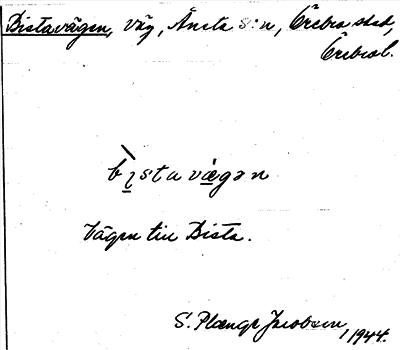 Bistavägen, väg, Ånsta s:n, Örebro stad,
Örebro l.
bìstavægən
Vägen till Bista.
S. Plænge Jacobson, 1944.